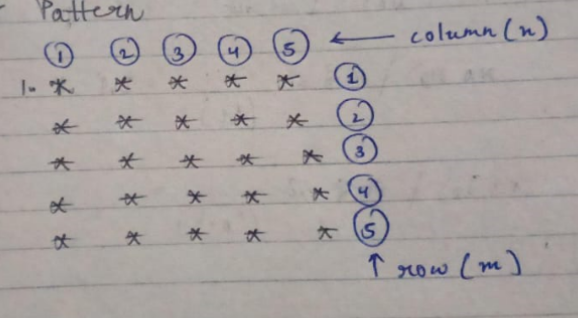 Pattern
① ② ③ ④ ⑤ ← column (n)
1. * * * * * ①
* * * * * ②
* * * * * ③
* * * * * ④
* * * * * ⑤
↑ row (m)